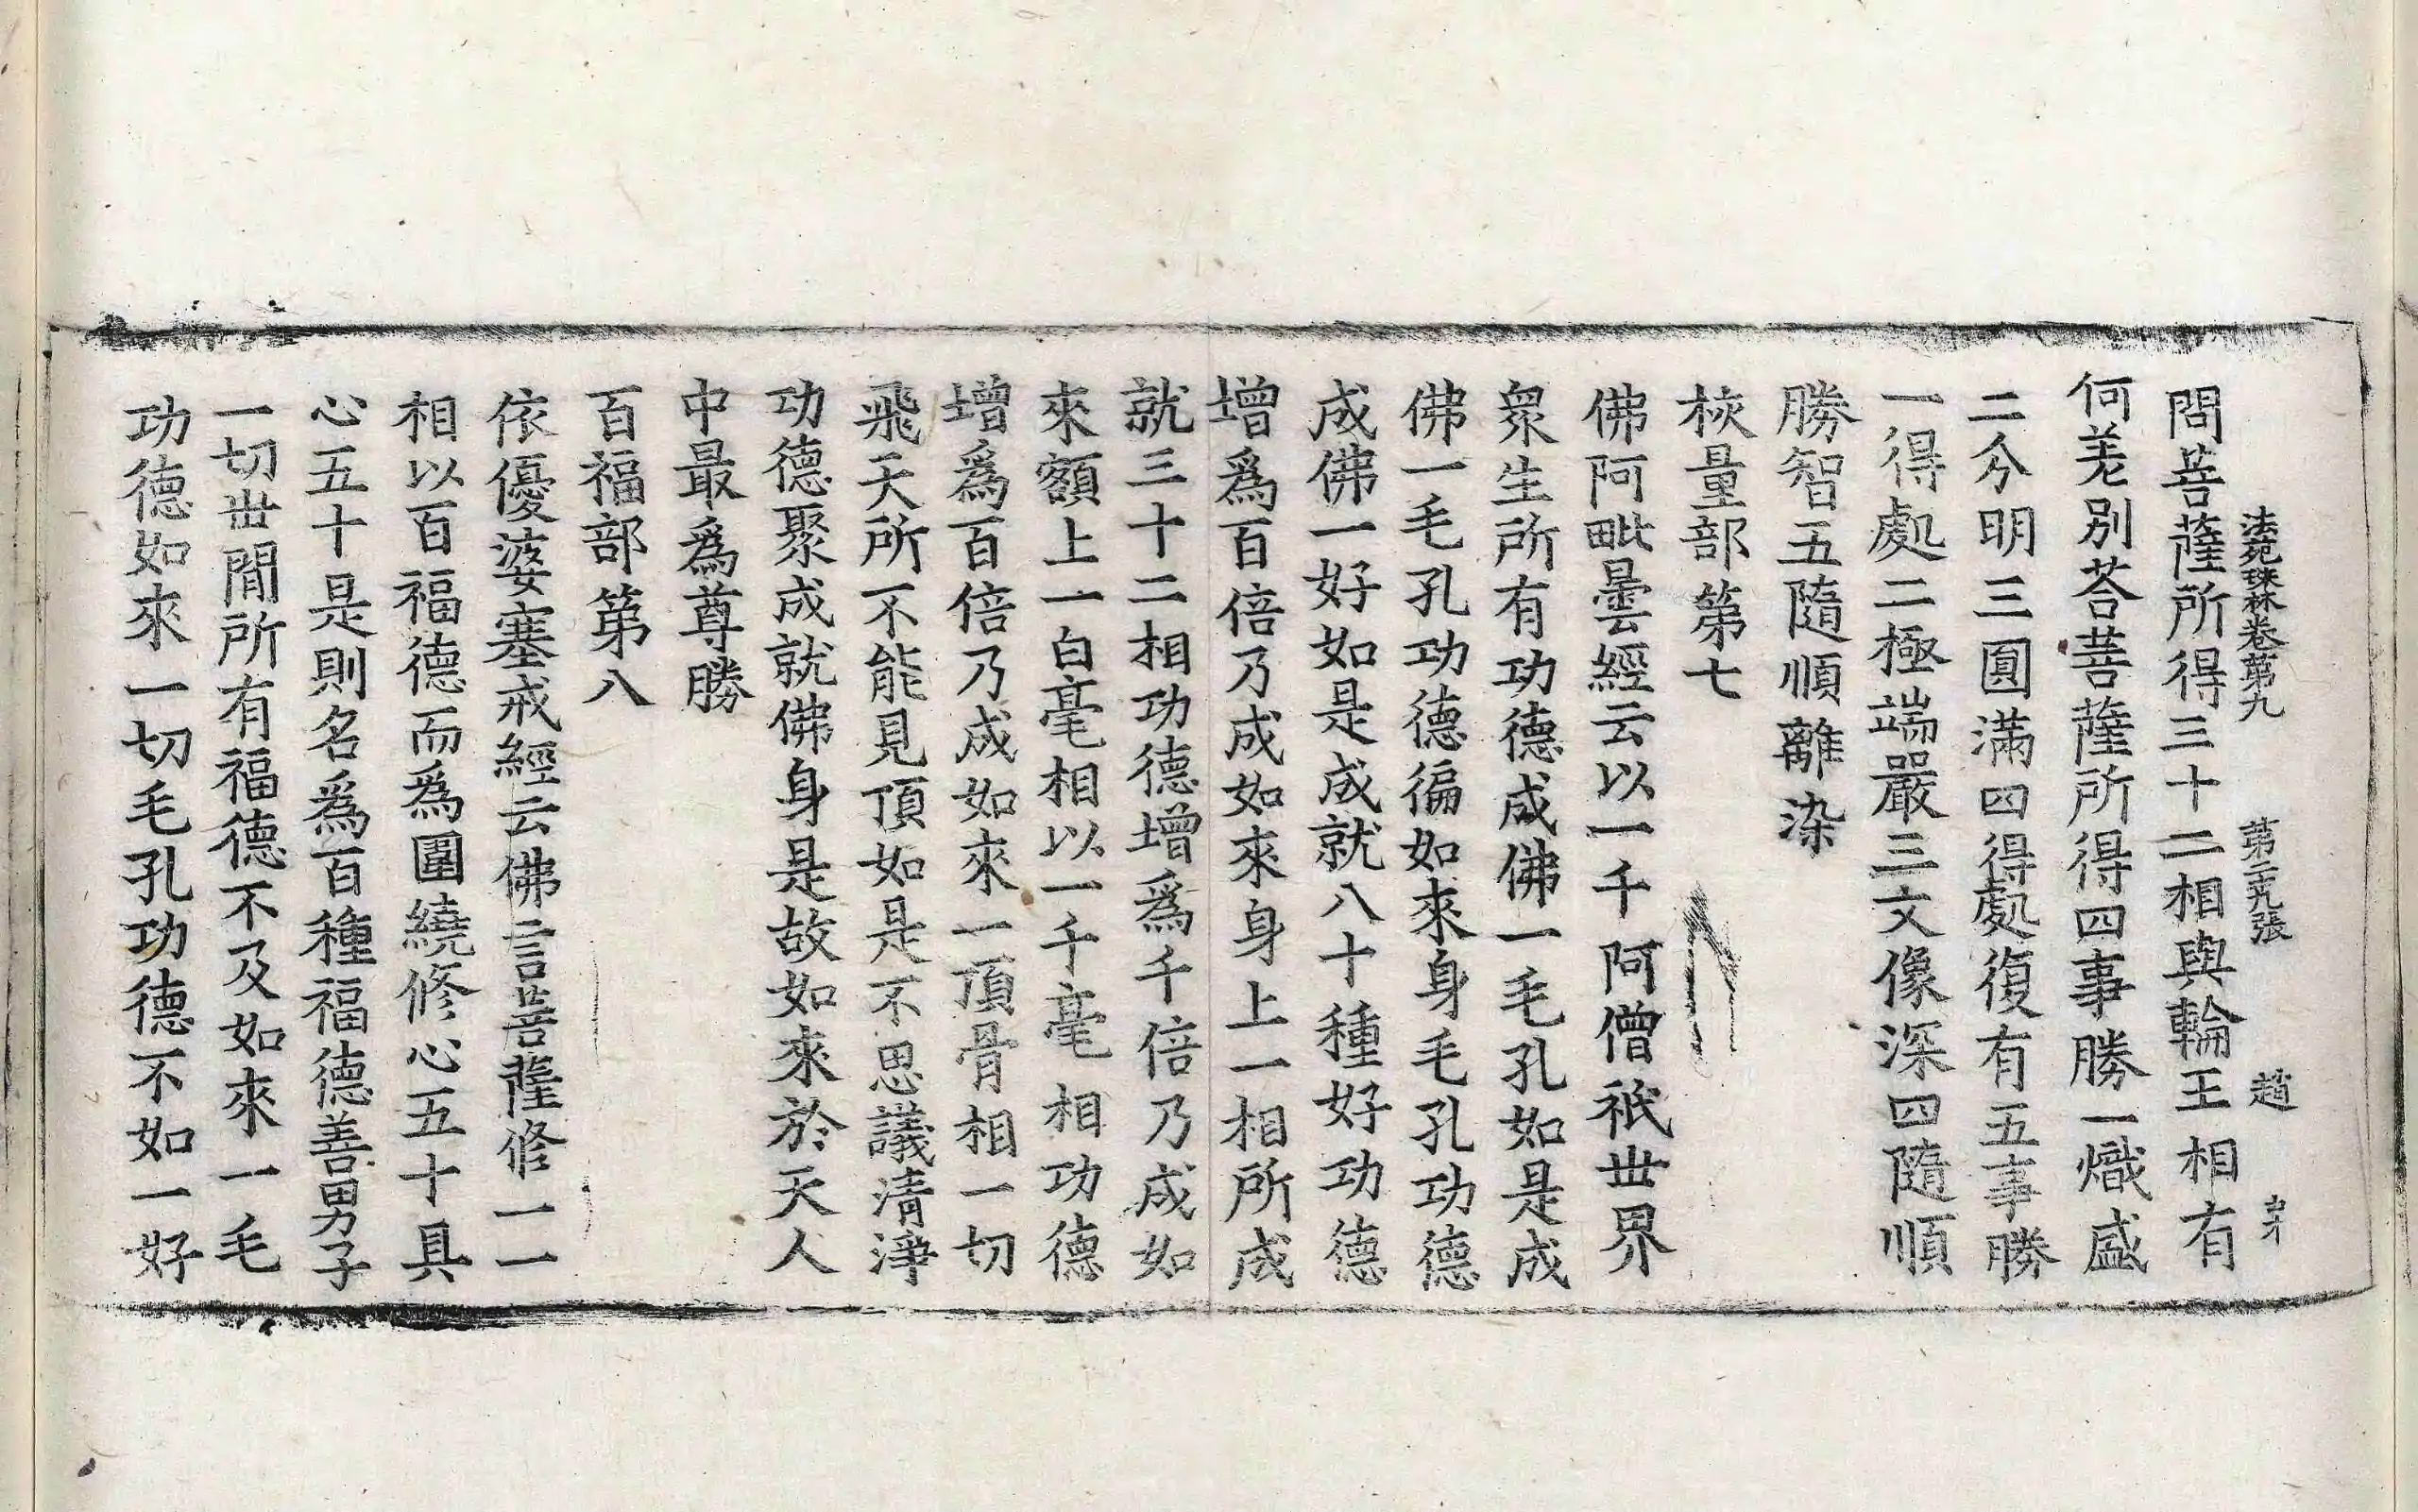 法苑珠林卷第九 第二十九張 趙
問菩薩所得三十二相與輪王相有
何差別荅菩薩所得四事勝一熾盛
二分明三圓滿四得處復有五事勝
一得處二極端嚴三文像深四隨順
勝智五隨順離染
校量部第七
佛阿毗曇經云以一千阿僧祇世界
衆生所有功德成佛一毛孔如是成
佛一毛孔功德徧如來身毛孔功德
成佛一好如是成就八十種好功德
增爲百倍乃成如來身上一相所成
就三十二相功德增爲千倍乃成如
來額上一白毫相以一千毫相功德
增爲百倍乃成如來一頂骨相一切
飛天所不能見頂如是不思議清淨
功德聚成就佛身是故如來於天人
中最爲尊勝
百福部第八
依優婆塞戒經云佛言菩薩修一一
相以百福德而爲圍繞修心五十具
心五十是則名爲百種福德善男子
一切世間所有福德不及如來一毛
功德如來一切毛孔功德不如一好